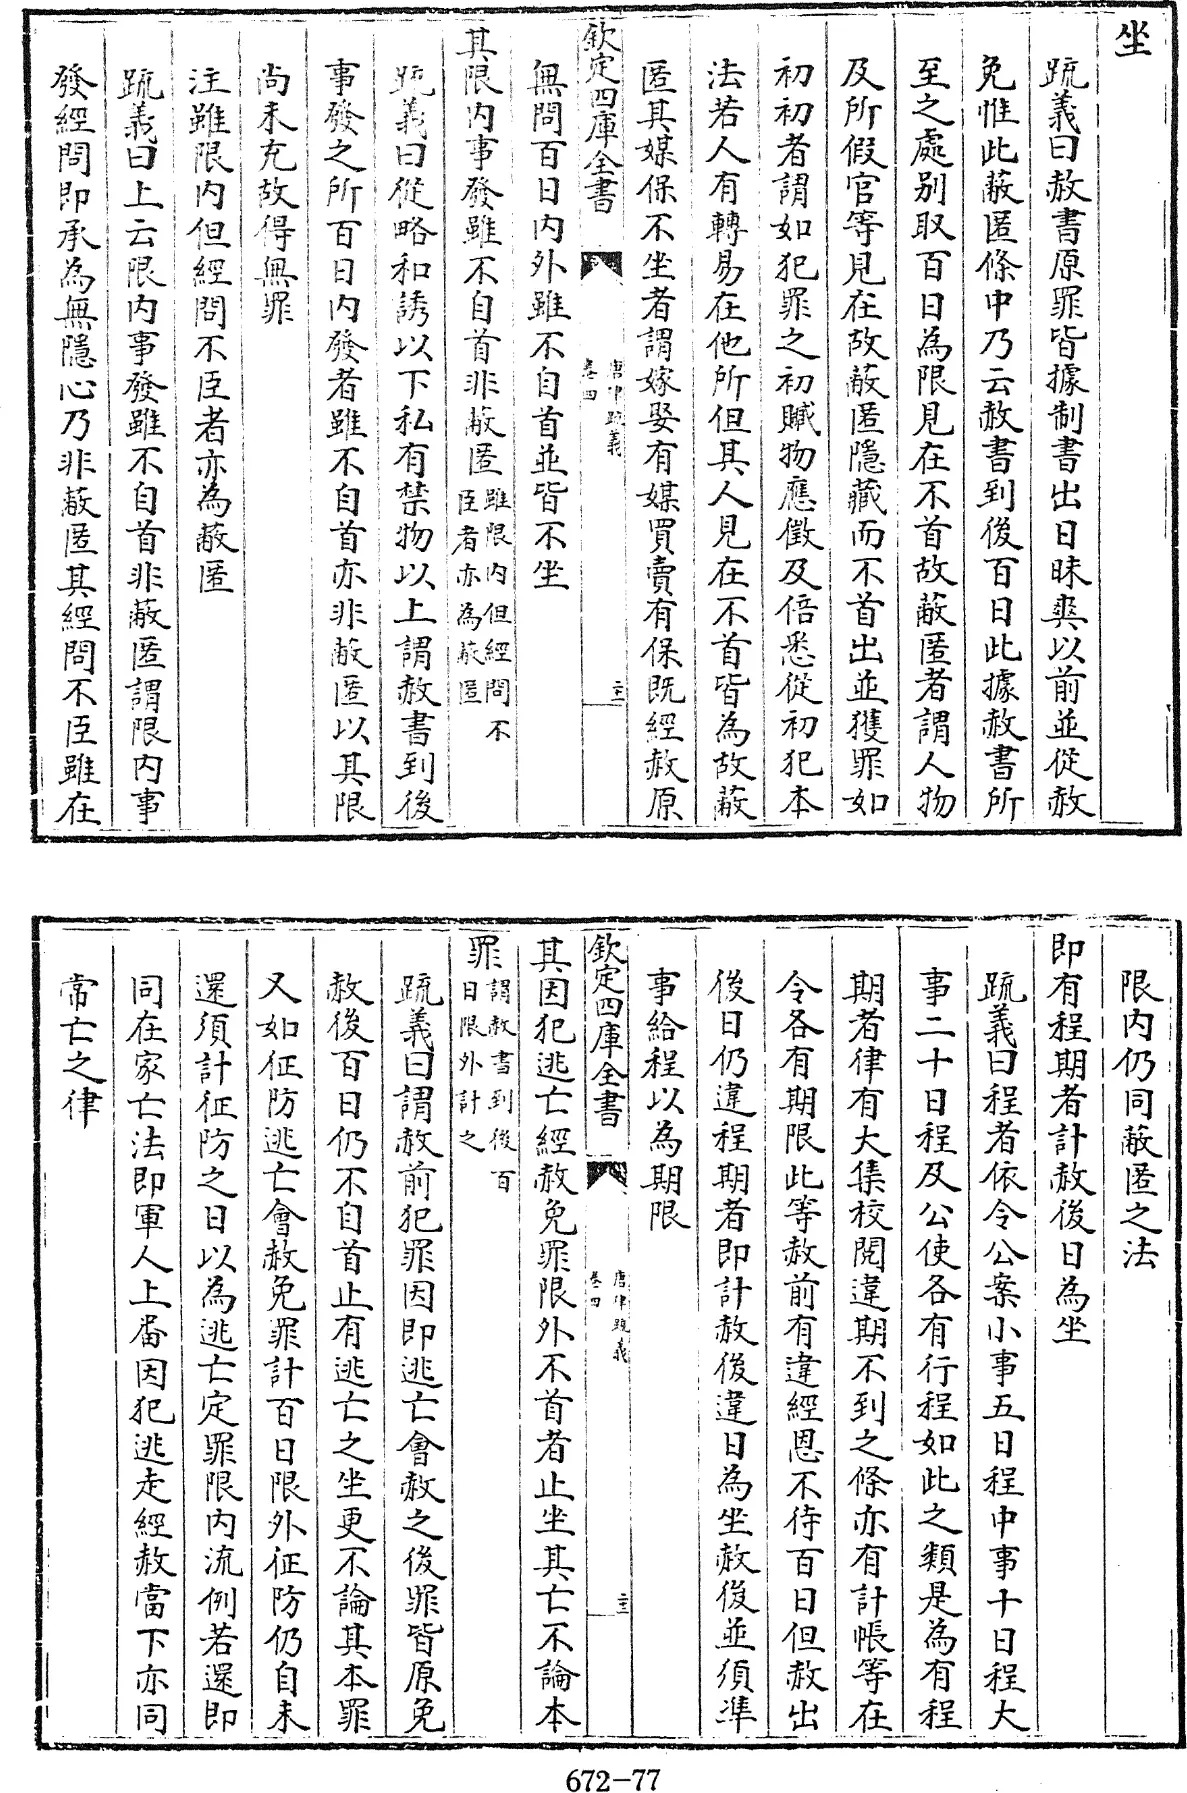 坐
疏義曰赦書原罪皆據制書出日昧爽以前並從赦
免惟此蔽匿條中乃云赦書到後百日此據赦書所
至之處别取百日為限見在不首故蔽匿者謂人物
及所假官等見在故蔽匿隱藏而不首出並獲罪如
初初者謂如犯罪之初贓物應徵及倍悉從初犯本
法若人有轉易在他所但其人見在不首皆為故蔽
匿其媒保不坐者謂嫁娶有媒買賣有保既經赦原
欽定四庫全書
唐律疏義
卷四
二十二
無問百日内外雖不自首並皆不坐
其限内事發雖不自首非蔽匿
雖限内但經問不
臣者亦為蔽匿
疏義曰從略和誘以下私有禁物以上謂赦書到後
事發之所百日内發者雖不自首亦非蔽匿以其限
尚未充故得無罪
注雖限内但經問不臣者亦為蔽匿
疏義曰上云限内事發雖不自首非蔽匿謂限内事
發經問即承為無隱心乃非蔽匿其經問不臣雖在
限内仍同蔽匿之法
即有程期者計赦後日為坐
疏義曰程者依令公案小事五日程中事十日程大
事二十日程及公使各有行程如此之類是為有程
期者律有大集校閲違期不到之條亦有計帳等在
令各有期限此等赦前有違經恩不待百日但赦出
後日仍違程期者即計赦後違日為坐赦後並須準
事給程以為期限
欽定四庫全書
唐律疏義
卷四
二十二
其因犯逃亡經赦免罪限外不首者止坐其亡不論本
罪
謂赦書到後百
日限外計之
疏義曰謂赦前犯罪因即逃亡會赦之後罪皆原免
赦後百日仍不自首止有逃亡之坐更不論其本罪
又如征防逃亡會赦免罪計百日限外征防仍自未
還須計征防之日以為逃亡定罪限内流例若還即
同在家亡法即軍人上畨因犯逃走經赦當下亦同
常亡之律
672-77